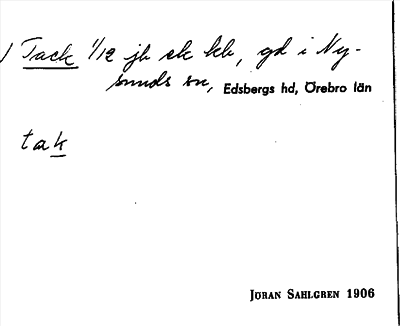 ) Tack 1/12 jb sk kb, gd i Ny-
sunds sn, Edsbergs hd, Örebro län
tak
JÖRAN SAHLGREN 1906